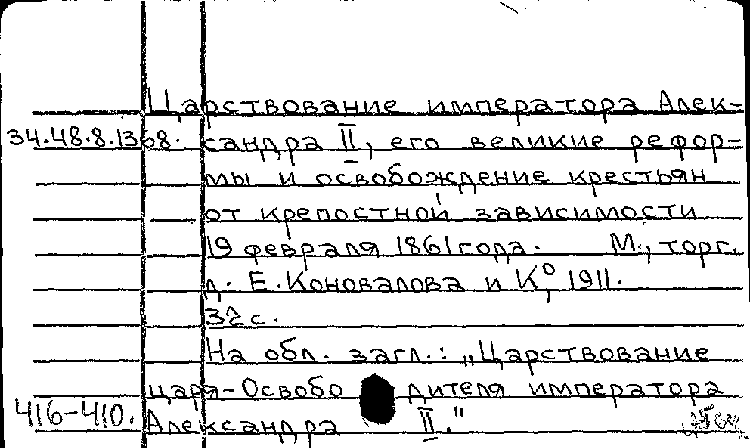 Царствование императора Алек-
34.48.8.1368. сандра II, его великие рефор-
мы и освобождение крестьян
от крепостной зависимости
19 февраля 1861 года. М., торг.
д. Е. Коновалова и К°, 1911.
32 с.
На обл. загл.: „Царствование
царя-Освободителя императора
416-410. Александра II."